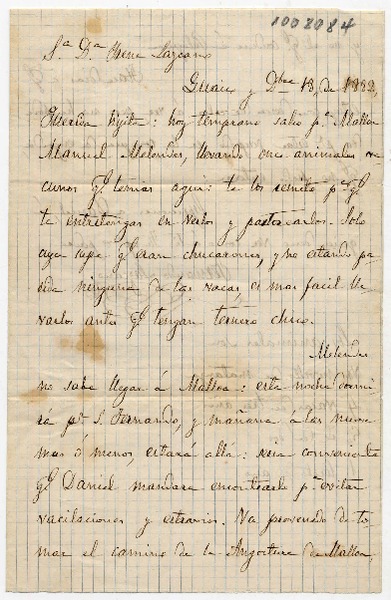 1008084
Sa. Da. Irene Lazcano
Guaico y Dbre 18, de 1882,
Querida hijita: hoy temprano salió pa. Malloa
Manuel Melendes, llevando once animales va-
cunos q. temias aquí: te los remito pa. q.
te entretengas en verlos y pastorearlos. Solo
ayer supe q. eran chucarones, y no estando pa-
rida ninguna de las vacas, es mas facil lle-
varlos antes q. tengan ternero chico.
Melendes
no sabe llegar á Malloa: esta noche dormi-
rá pr. S. Fernando, y mañana á las nueve
mas ó menos, estará allá: seria conveniente
q. Daniel mandara encontrarle pa. evitar
vacilaciones y estravios. Va prevenido de to-
mar el camino de la Angostura de Malloa.